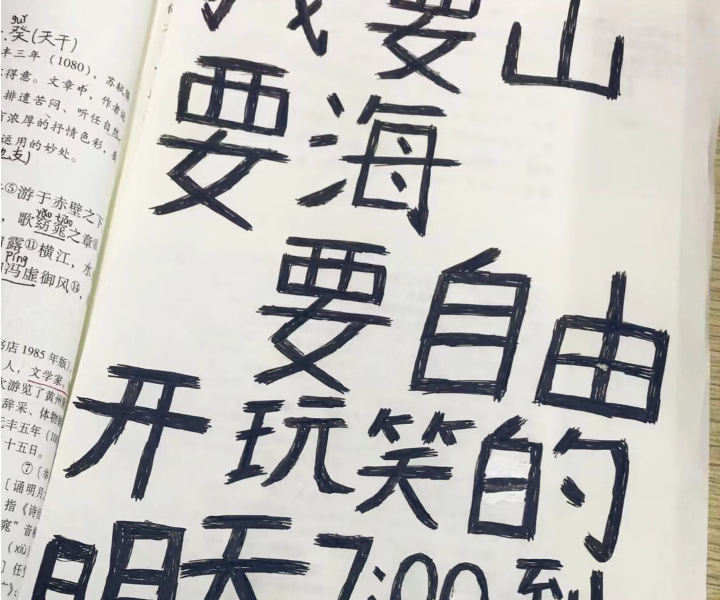 guǐ
癸(天干)
丰三年(1080),苏轼
得意。文章中,作者
排遣苦闷、听任自然
浓厚的抒情色彩,
运用的妙处。
⑤游于赤壁之下
yǎo tiǎo
,歌窈窕之章
露⑪横江,水
píng
冯虚御风⑮,
书店1985年版)
人,文学家,
游览了黄州
辞采、体物
元丰五年(10
十五日。
⑦〔举
〔诵明月
指《诗经
窕”音
(xiù)
我要山
要海
要自由
开玩笑的
明天7:00到